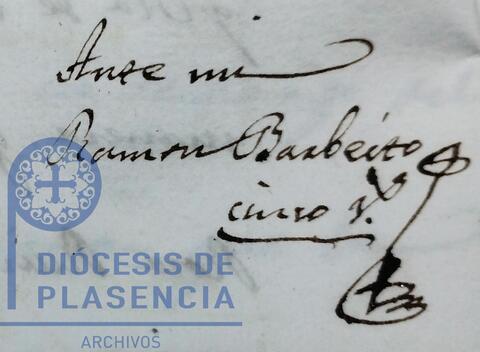 Ante mi
Ramon Barbeito
DIÓCESIS DE
PLASENCIA
ARCHIVOS